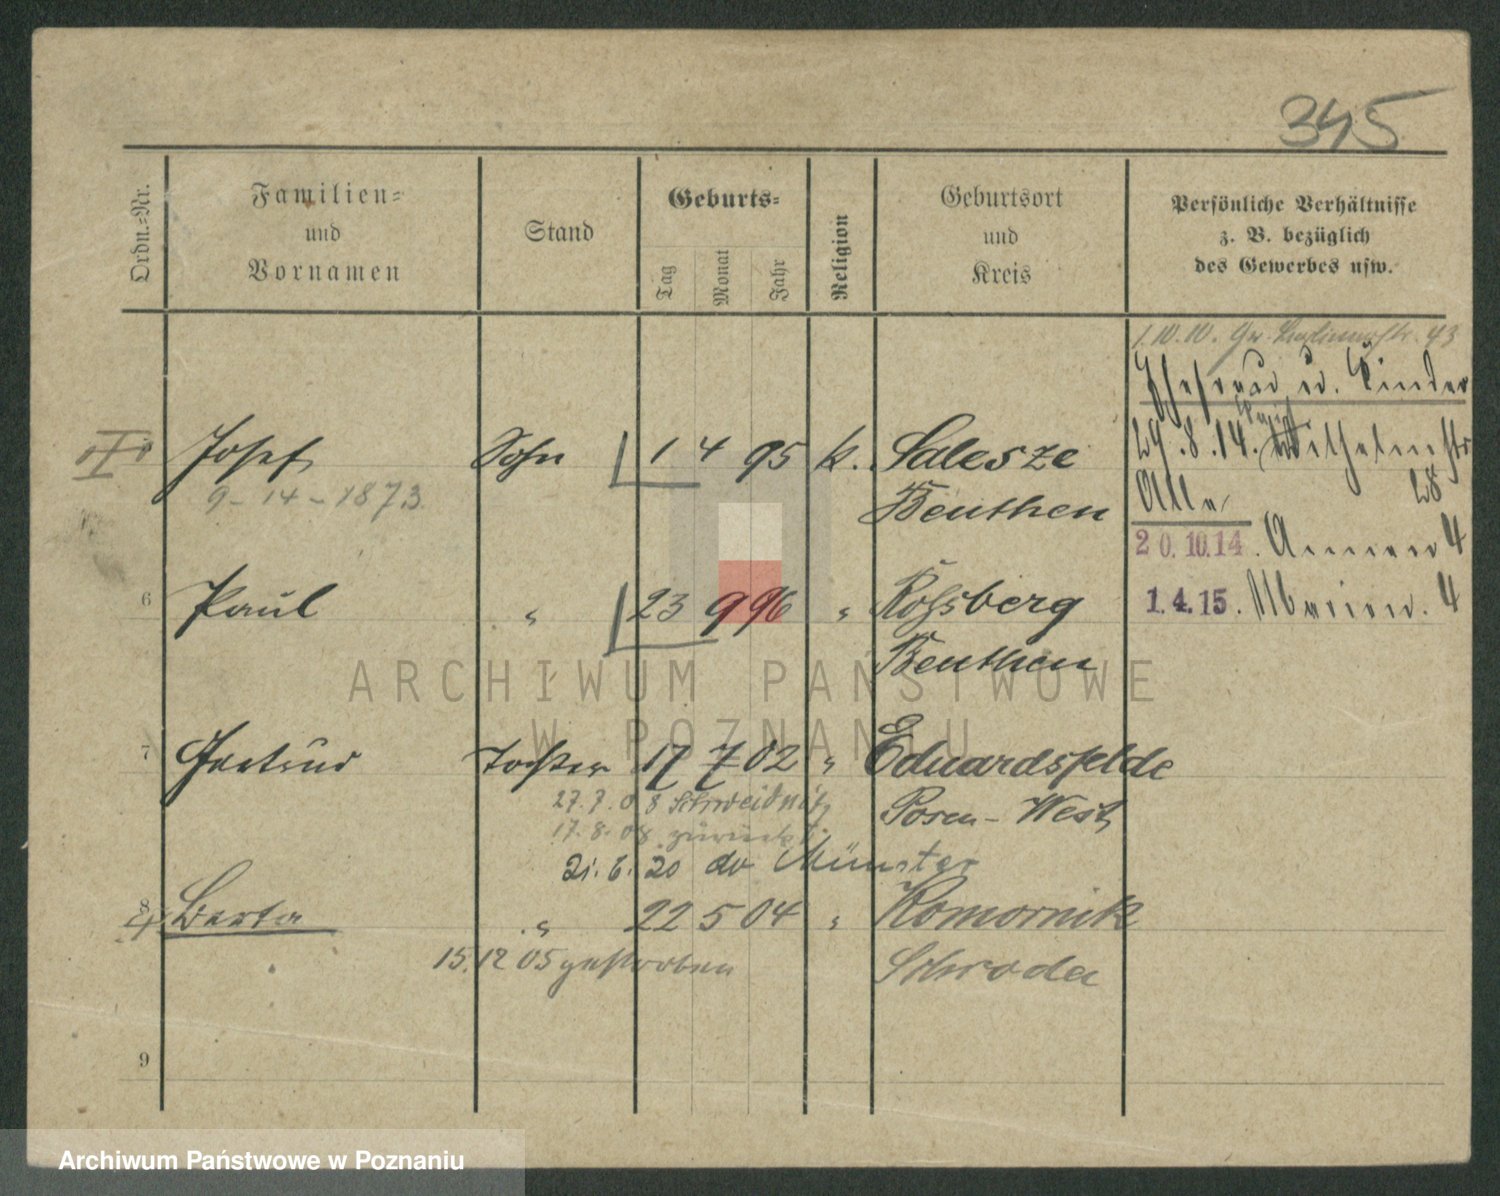 345
Ordn.=Nr.
Familien=
und
Vornamen
Stand
Geburts=
Tag
Monat
Jahr
Religion
Geburtsort
und
Kreis
Persönliche Verhältnisse
z. B. bezüglich
des Gewerbes usw.
1.10.10. Gr. 43
Ehefrau u. Kinder
29.8.14. Wilhelmstr
28
Alle
20.10.14. Annen 4
1.4.15. Marien. 4
Josef Sohn 1 4 95 k. Salesze
9-14-1873
Beuthen
6 Paul " 23 9 96 " Roßberg
Beuthen
7 Gertrud Tochter 17 7 02 " Eduardsfelde
27.7.08 Schweidnitz
Posen-West
17.8.08 zurück
21.6.20 Münster
8 Berta " 22 5 04 " Komornik
15.12 05 gestorben
Schroda
9
ARCHIWUM PAŃSTWOWE
W POZNANIU
Archiwum Państwowe w Poznaniu